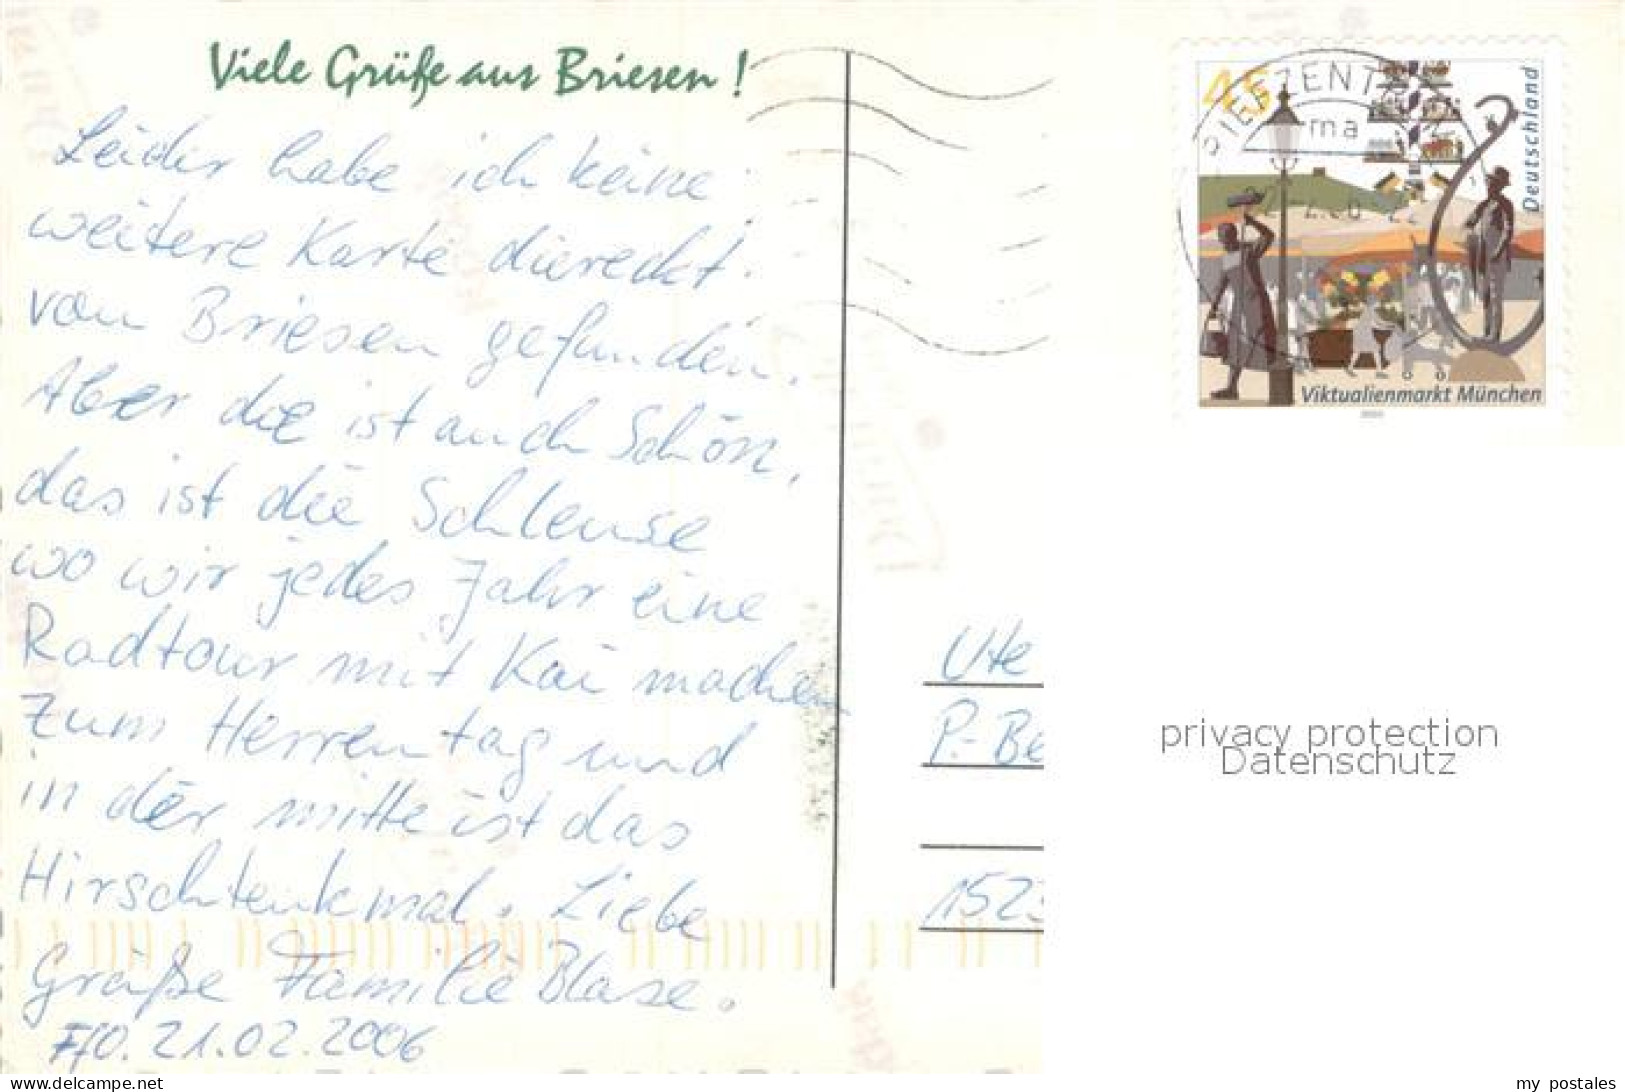 Viele Grüße aus Briesen !
Leider habe ich keine
weitere Karte diereckt
von Briesen gefunden.
Aber die ist auch Schön,
das ist die Schleuse
wo wir jedes Jahr eine
Radtour mit Kai machen
Zum Herrentag und
in der mitte ist das
Hirschtenkmal. Liebe
Grüße Familie Blase.
FfO. 21.02.2006
45
Deutschland
BRIEFZENTRUM
ma
Viktualienmarkt München
Ute
P.-Be
1523
privacy protection
Datenschutz
www.delcampe.net
my_postales